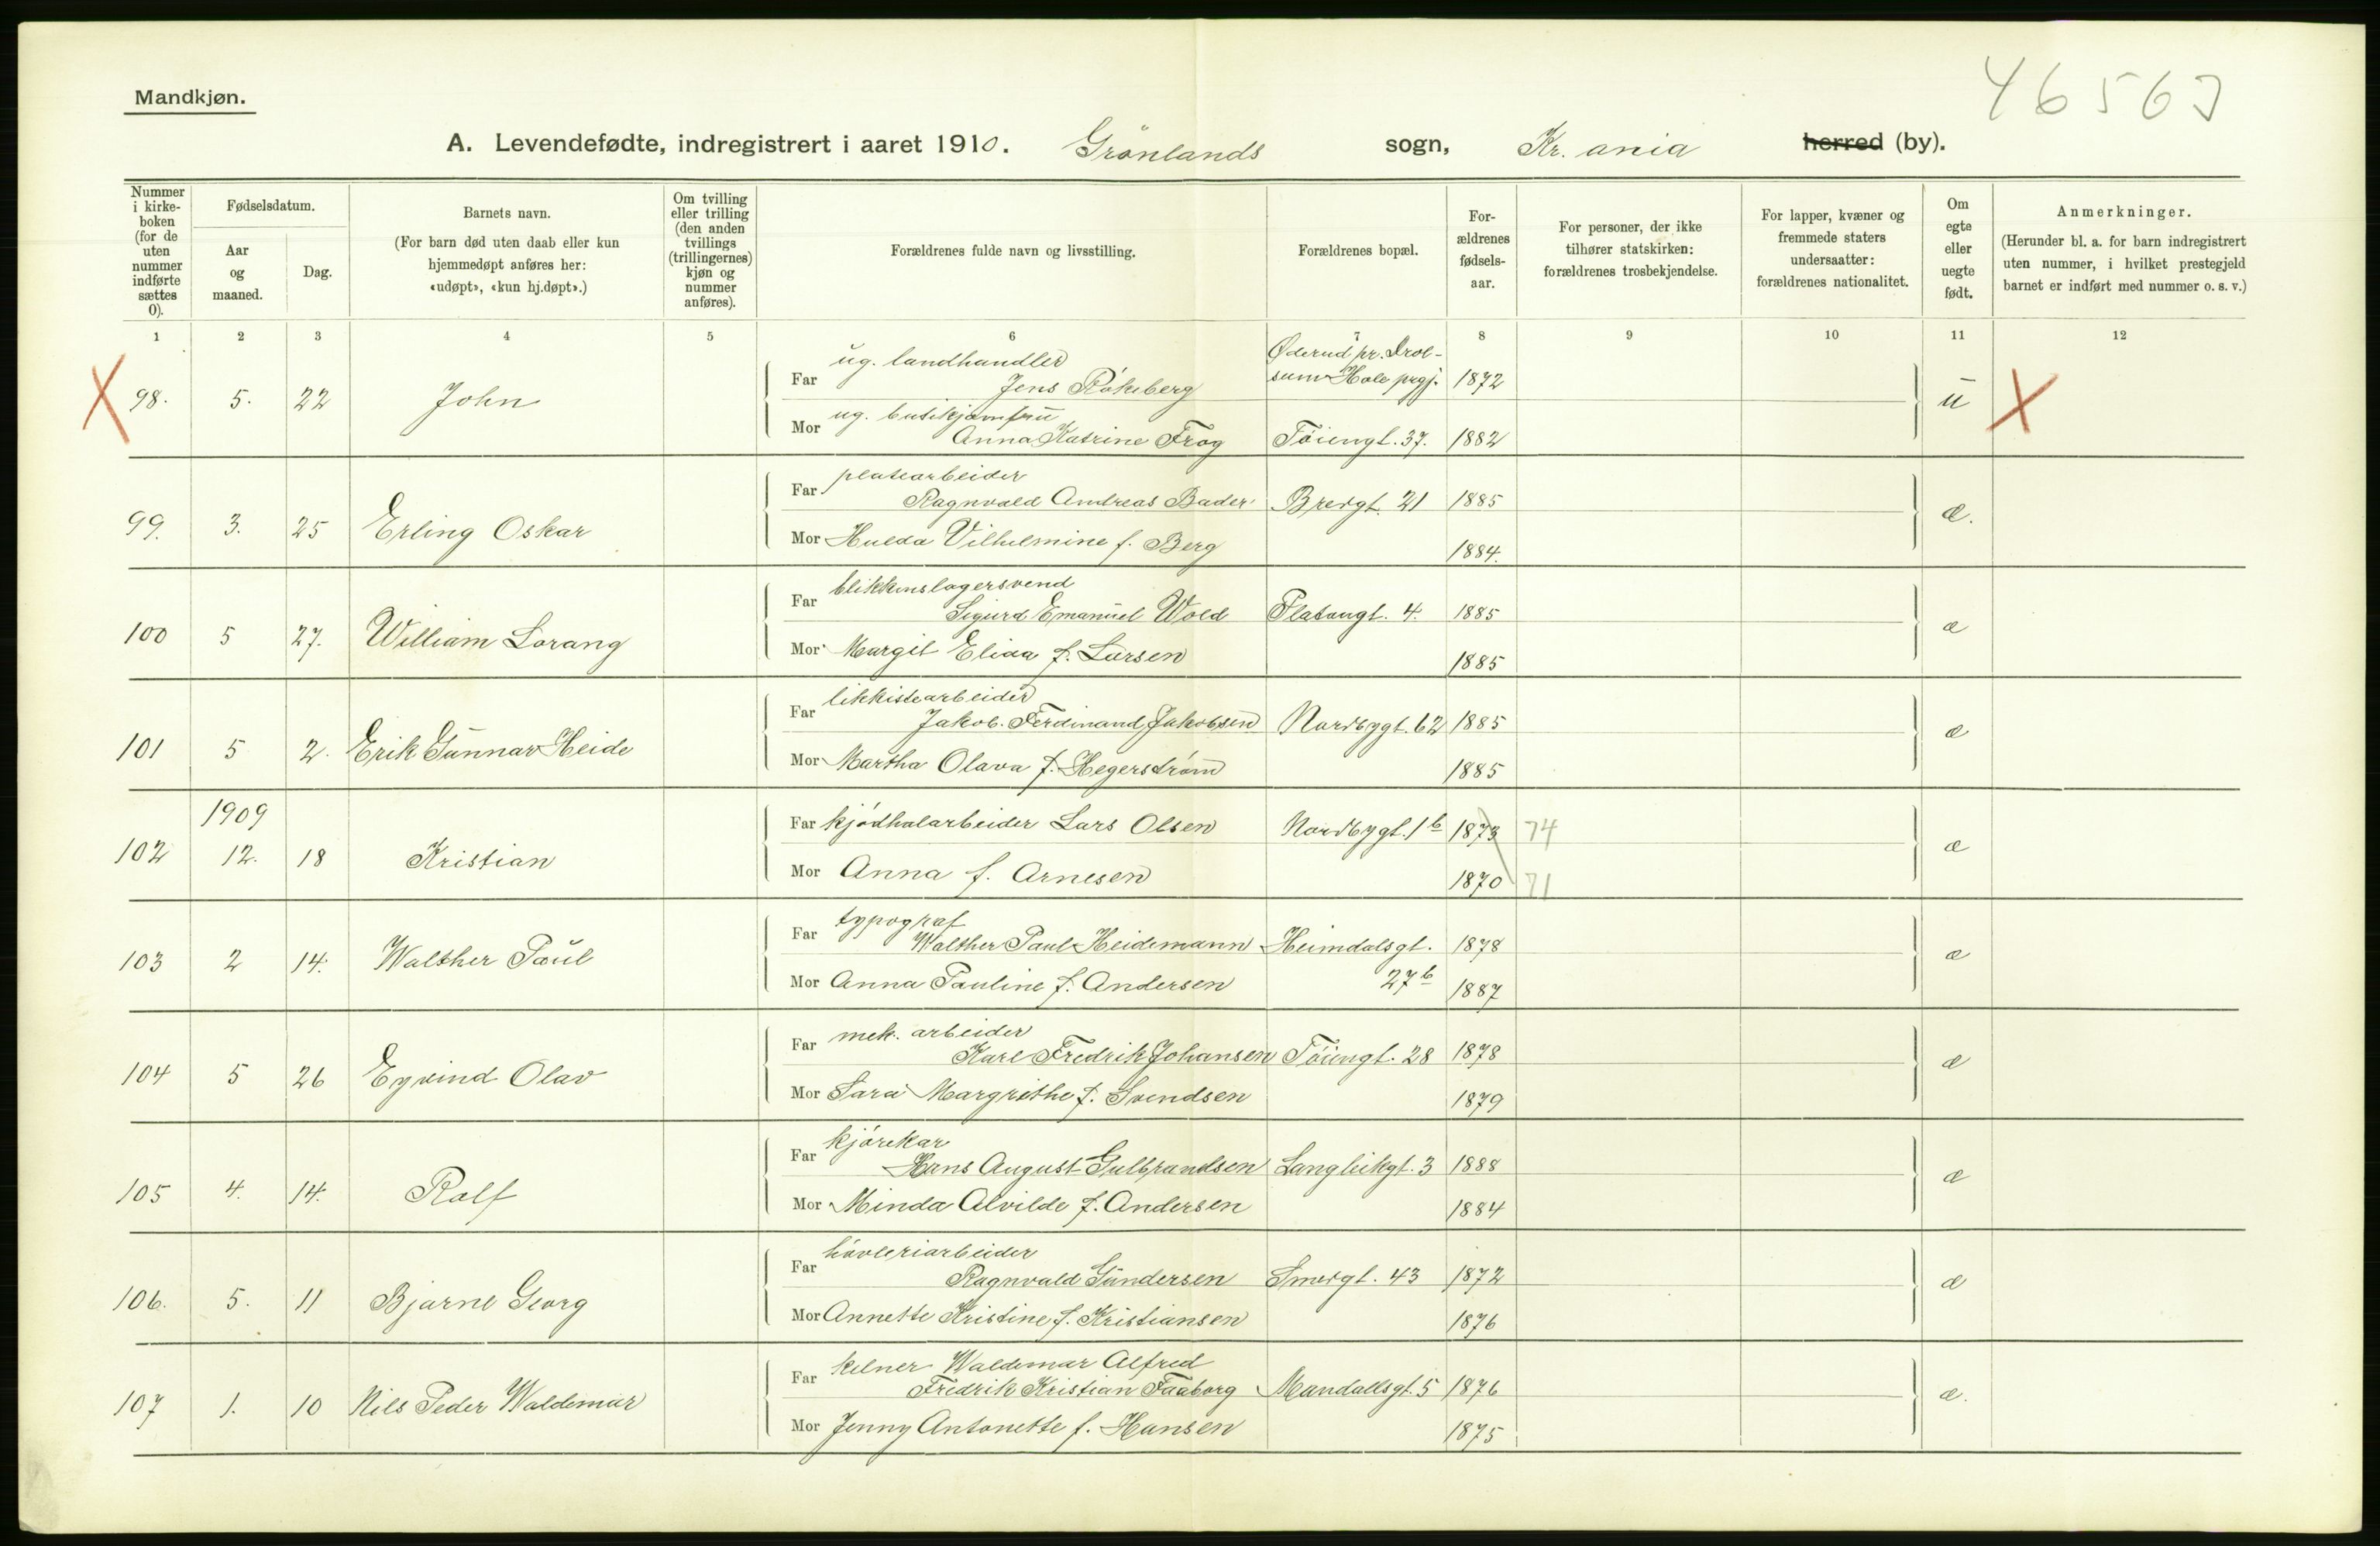 Mandkjøn.
46563
A. Levendefødte, indregistrert i aaret 1910. Grönlands sogn, Kr. ania herred (by).
Nummer i kirke-boken (for de uten nummer indførte sættes 0).
Fødselsdatum.
Aar og maaned.
Dag.
Barnets navn.
(For barn død uten daab eller kun hjemmedøpt anføres her: «udøpt», «kun hj.døpt».)
Om tvilling eller trilling (den anden tvillings (trillingernes) kjøn og nummer anføres).
Forældrenes fulde navn og livsstilling.
Forældrenes bopæl.
For-ældrenes fødsels-aar.
For personer, der ikke tilhører statskirken: forældrenes trosbekjendelse.
For lapper, kvæner og fremmede staters undersaatter: forældrenes nationalitet.
Om egte eller uegte født.
Anmerkninger.
(Herunder bl. a. for barn indregistrert uten nummer, i hvilket prestegjeld barnet er indført med nummer o. s. v.)
1 2 3 4 5 6 7 8 9 10 11 12
X 98. 5. 22 John
Far ug. landhandler Jens Rökeberg Øderud pr. Drolsum Hole prgj. 1872 u X
Mor ug. butikjomfru Anna Katrine Frog Töiengt. 37. 1882
99. 3. 25 Erling Oskar
Far platearbeider Ragnvald Andreas Bader Bredgt. 21 1885 æ.
Mor Hulda Vilhelmine f. Berg 1884.
100 5 27. William Lorang
Far blikkenslagersvend Sigurd Emanuel Wold Platougt. 4. 1885 æ
Mor Margit Elida f. Larsen 1885
101 5 2. Erik Gunnar Heide
Far likkistearbeider Jakob Ferdinand Jakobsen Nordbygt. 62 1885 æ
Mor Martha Olava f. Hegerström 1885
1909
102 12. 18 Kristian
Far kjödhalarbeider Lars Olsen Nordbygt. 1 b 1873 74 æ
Mor Anna f. Arnesen 1870 71
103 2 14. Walther Paul
Far typograf Walther Paul Heidemann Heimdalsgt. 1878 æ
Mor Anna Pauline f. Andersen 27 b 1887
104 5 26 Eyvind Olav
Far mek. arbeider Karl Fredrik Johansen Töiengt. 28 1878 æ
Mor Sara Margrethe f. Svendsen 1879
105 4. 14. Rolf
Far kjörekar Hans August Gulbrandsen Langleikgt. 3 1888 æ
Mor Minda Alvilde f. Andersen 1884
106. 5. 11 Bjarne Georg
Far hövleriarbeider Ragnvald Gundersen Smedgt. 43 1872 æ
Mor Annette Kristine f. Kristiansen 1876
107 1. 10 Nils Peder Waldemar
Far kelner Waldemar Alfred Fredrik Kristian Faaborg Mandallsgt. 5 1876 æ.
Mor Jenny Antonette f. Hansen 1875